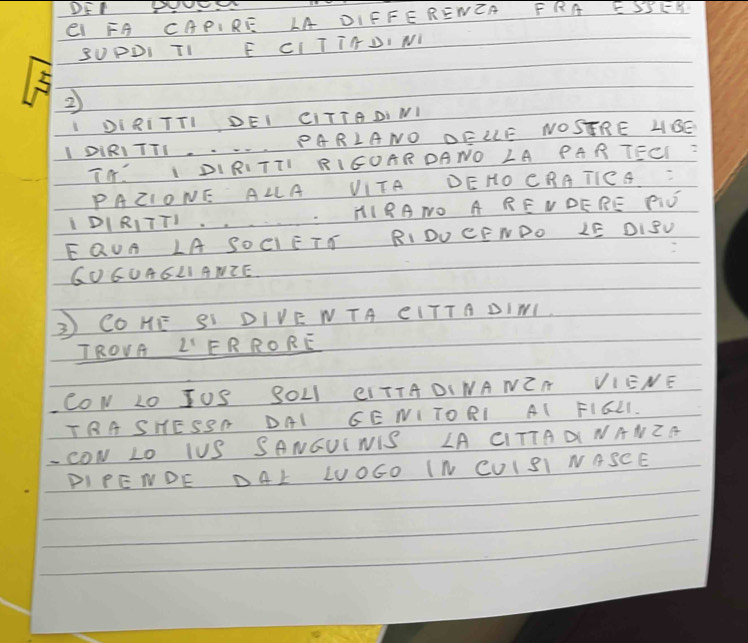 DEI
CI FA CAPIRE LA DIFFERENZA FRA ESSER
SUPDITI E CITTADINI
2)
I DIRITTI DEI CITTADINI
I DIRITTI ..... PARLANO DELLE NOSTRE LIBE
TÀ I DIRITTI RIGUARDANO LA PARTECI =
PAZIONE ALLA VITA DEMOCRATICA =
I DIRITTI ........ MIRANO A RENDERE PIÚ
EQUA LA SOCIETÀ RIDUCENDO LE DISU =
GUGUAGLIANZE.
3) COME SI DIVENTA CITTADINI
TROVA L'ERRORE
- CON LO IUS SOLI CITTADINANZA VIENE
TRASMESSA DAI GENITORI AI FIGLI.
- CON LO IUS SANGUINIS LA CITTADINANZA
DIPENDE DAL LUOGO IN CUI SI NASCE